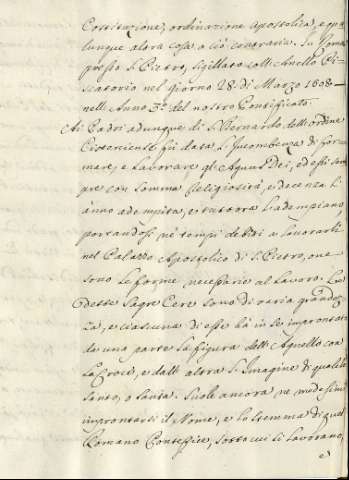 Costituzione, ordinazione Apostolica, e qua
lunque altra cosa a ciò contraria. In Roma
presso S. Pietro, sigillato coll' Anello Pi-
scatorio nel giorno 28. di Marzo 1608 –
nell' Anno 3.º del nostro Pontificato.
Ai Padri adunque di S. Bernardo dell' ordine
Cisterciense fù data l' Incombenza di for
mare, e lavorare gl' Agnus Dei, ed essi sem
pre con somma Religiosità, e decenza l'
ànno adempita, e tuttora l' adempiano,
portandosi ne' tempi debiti a lavorarli
nel Palazzo Apostolico di S. Pietro, ove
sono le forme necessarie al lavoro. Le
dette Sagre Cere sono di varia grandez
za, e ciascuna di esse hà in sé improntata
da una parte la figura dell' Agnello con
la Croce, e dall' altra l' Imagine di qualche
Santo, o Santa. Suole ancora ne medesimi
improntarsi il Nome, e lo stemma di quel
Romano Pontefice, sotto cui si lavorano,
e